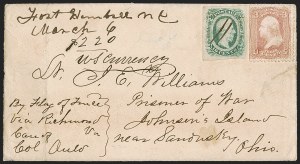 March 6
U S Currency
Lt. J. C. Williams
Prisoner of War
Johnson's Island
near Sandusky
Ohio.
By Flag of Truce
Via Richmond
Va
Care of
Col